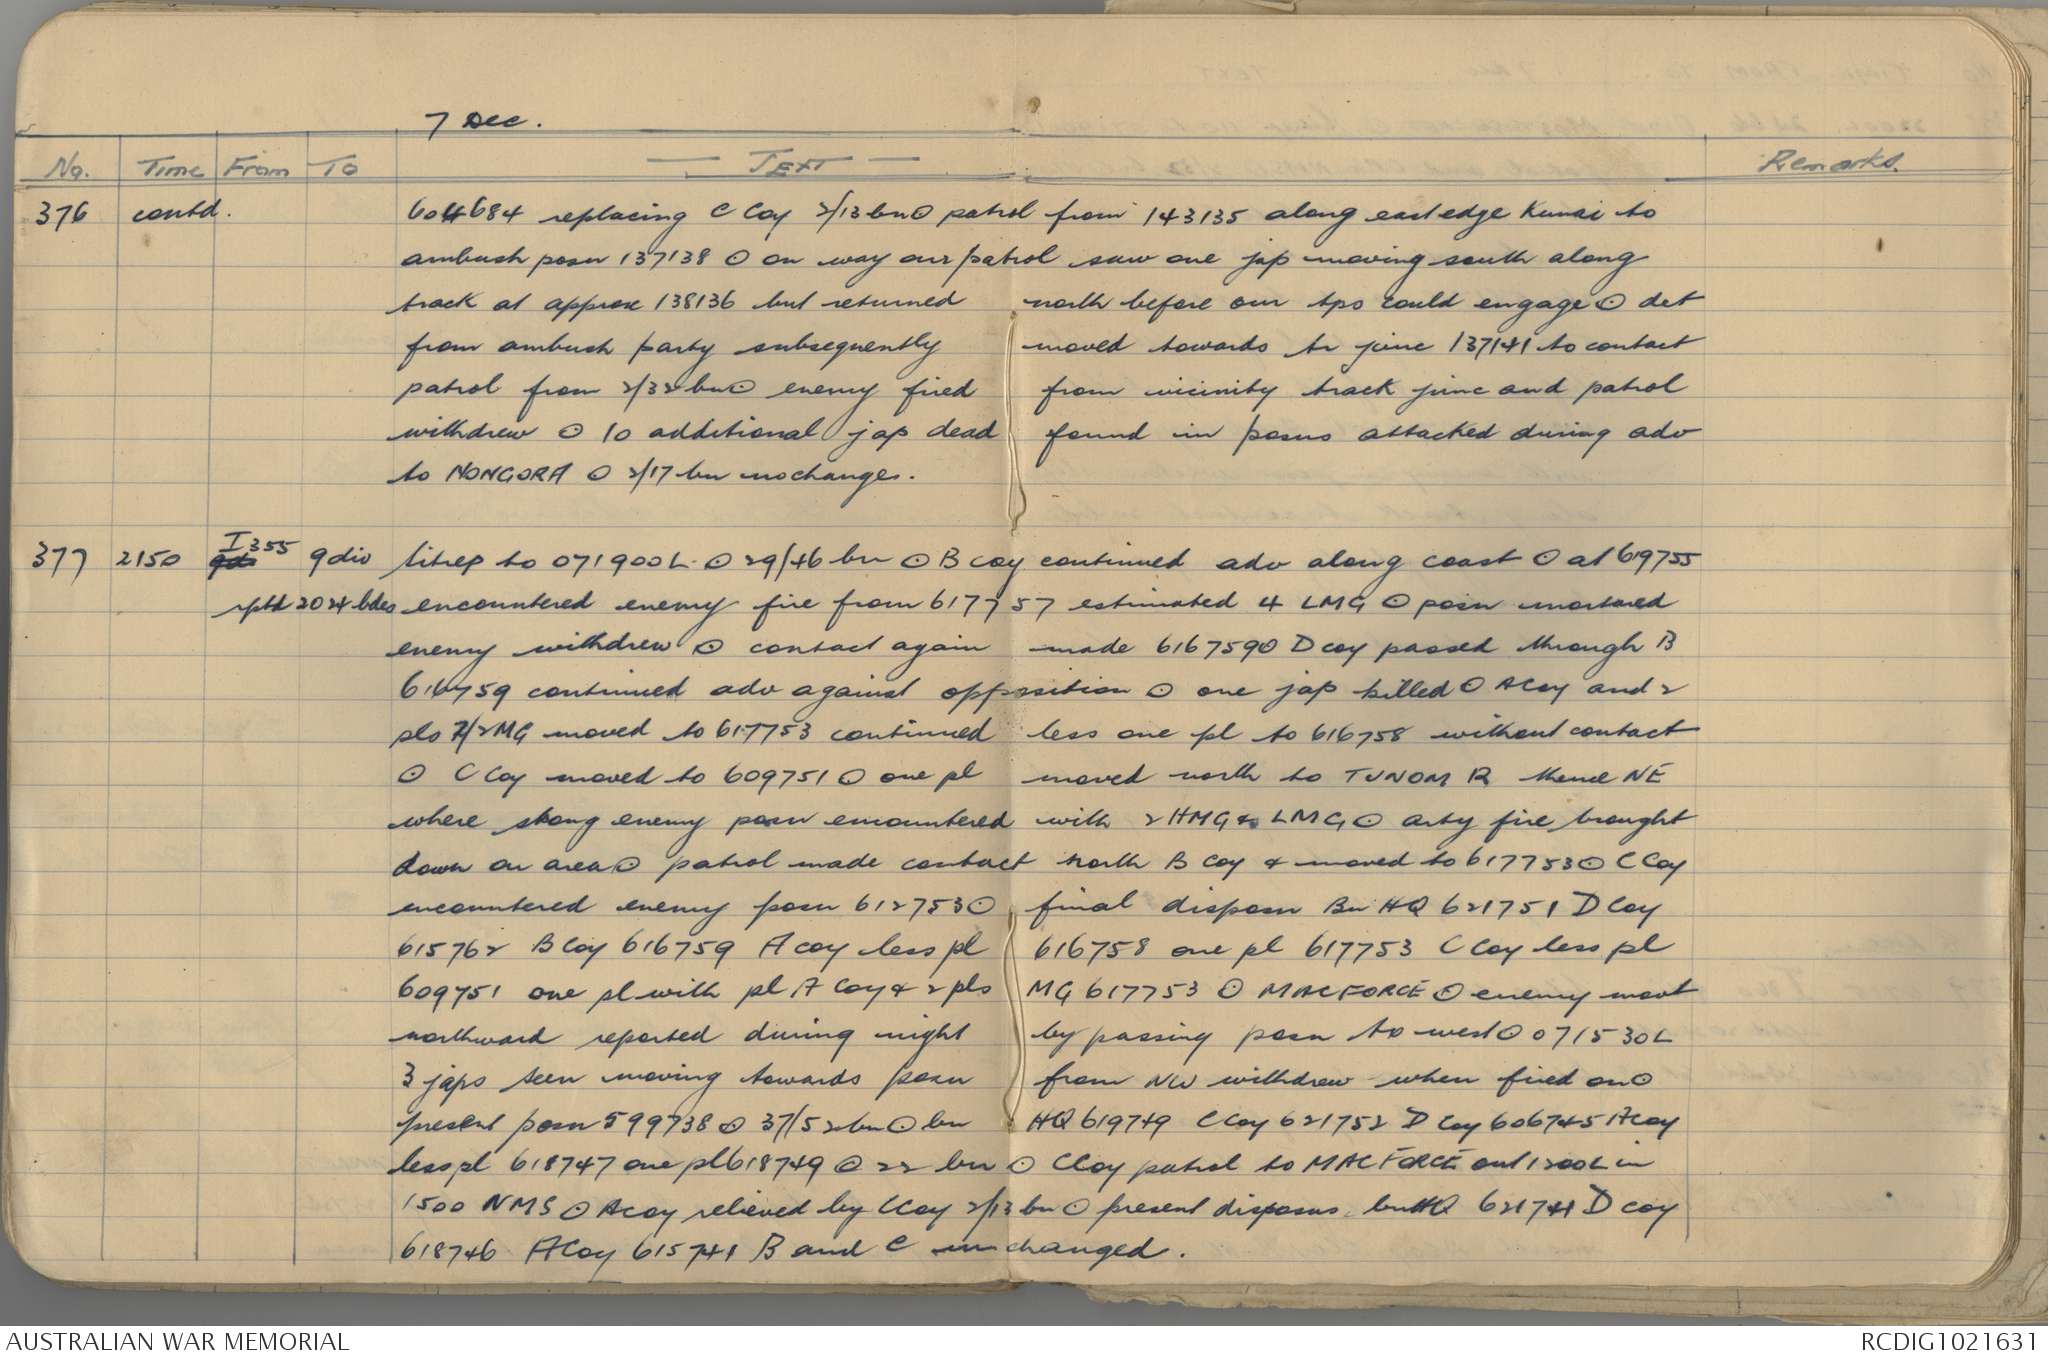 7 Dec.
No. Time From To TEXT Remarks.
376 contd. 604684 replacing C Coy 2/13 bn ⊙ patrol from 143135 along east edge Kunai to
ambush posn 137138 ⊙ on way our patrol saw one jap moving south along
track at approx 138136 but returned north before our tps could engage ⊙ det
from ambush party subsequently moved towards tr junc 137141 to contact
patrol from 2/32 bn ⊙ enemy fired from vicinity track junc and patrol
withdrew ⊙ 10 additional jap dead found in posns attacked during adv
to NONGORA ⊙ 2/17 bn no changes.
377 2150 I355 9 div Sitrep to 071900L ⊙ 29/46 bn ⊙ B coy continued adv along coast ⊙ at 619755
rptd 20 24 bdes encountered enemy fire from 617757 estimated 4 LMG ⊙ posn mortared
enemy withdrew ⊙ contact again made 616759 ⊙ D coy passed through B
616759 continued adv against opposition ⊙ one jap killed ⊙ A Coy and 2
pls 2/2 MG moved to 617753 continued less one pl to 616758 without contact
⊙ C Coy moved to 609751 ⊙ one pl moved north to TUNOM R thence NE
where strong enemy posn encountered with 2 HMG & LMG ⊙ arty fire brought
down on area ⊙ patrol made contact north B coy & moved to 617753 ⊙ C Coy
encountered enemy posn 612753 ⊙ final disposn Bn HQ 621751 D Coy
615762 B Coy 616759 A coy less pl 616758 one pl 617753 C Coy less pl
609751 one pl with pl A Coy & 2 pls MG 617753 ⊙ MACFORCE ⊙ enemy movt
northward reported during night by passing posn to west ⊙ 071530L
3 japs seen moving towards posn from NW withdrew when fired on ⊙
present posn 599738 ⊙ 37/52 bn ⊙ bn HQ 619749 C Coy 621752 D Coy 606745 A Coy
less pl 618747 one pl 618749 ⊙ 22 bn ⊙ C Coy patrol to MACFORCE out 1200L in
1500 NMS ⊙ A coy relieved by C Coy 2/13 bn ⊙ present disposns bn HQ 621741 D coy
618746 A Coy 615741 B and C unchanged.
AUSTRALIAN WAR MEMORIAL RCDIG1021631